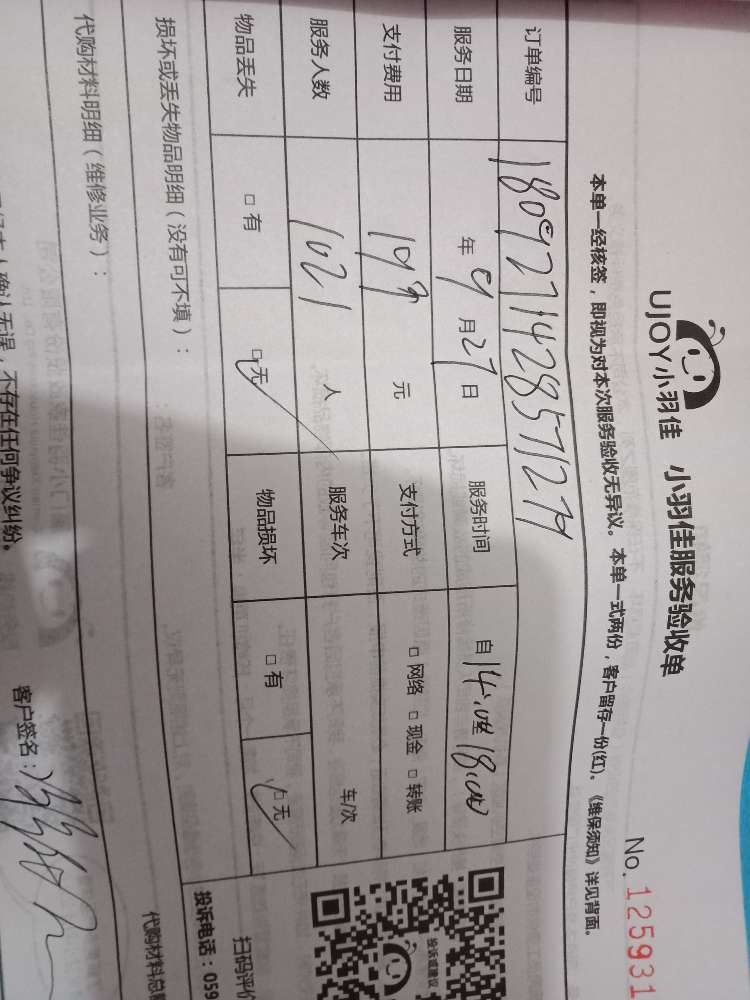 UJOY小羽佳 小羽佳服务验收单
No. 125931
本单一经核签，即视为对本次服务验收无异议。本单一式两份，客户留存一份(红)。《维保须知》详见背面。
订单编号 1809271428571279
服务日期 年 9 月 27 日 服务时间 自 14:00至 18:00
支付费用 元 支付方式 □ 网络 □ 现金 □ 转账
服务人数 1021 人 服务车次 车/次
物品丢失 □ 有 □ 无 物品损坏 □ 有 □ 无
损坏或丢失物品明细（没有可不填）：
代购材料明细（维修业务）：
投诉或建议
扫码评价
投诉电话：059
代购材料总
确认无误，不存在任何争议纠纷。
客户签名：